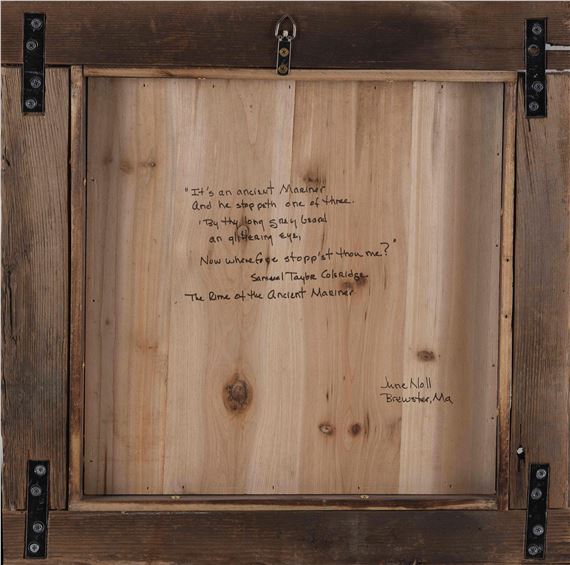 "It's an ancient Mariner
And he stoppeth one of three.
'By thy long grey beard
an glittering eye,
Now wherefore stopp'st thou me?"
Samuel Taylor Coleridge
The Rime of the Ancient Mariner
June Noll
Brewster, Ma